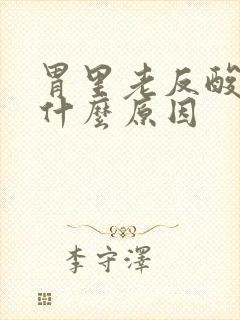 胃里老反酸
什麼原因
李守澤